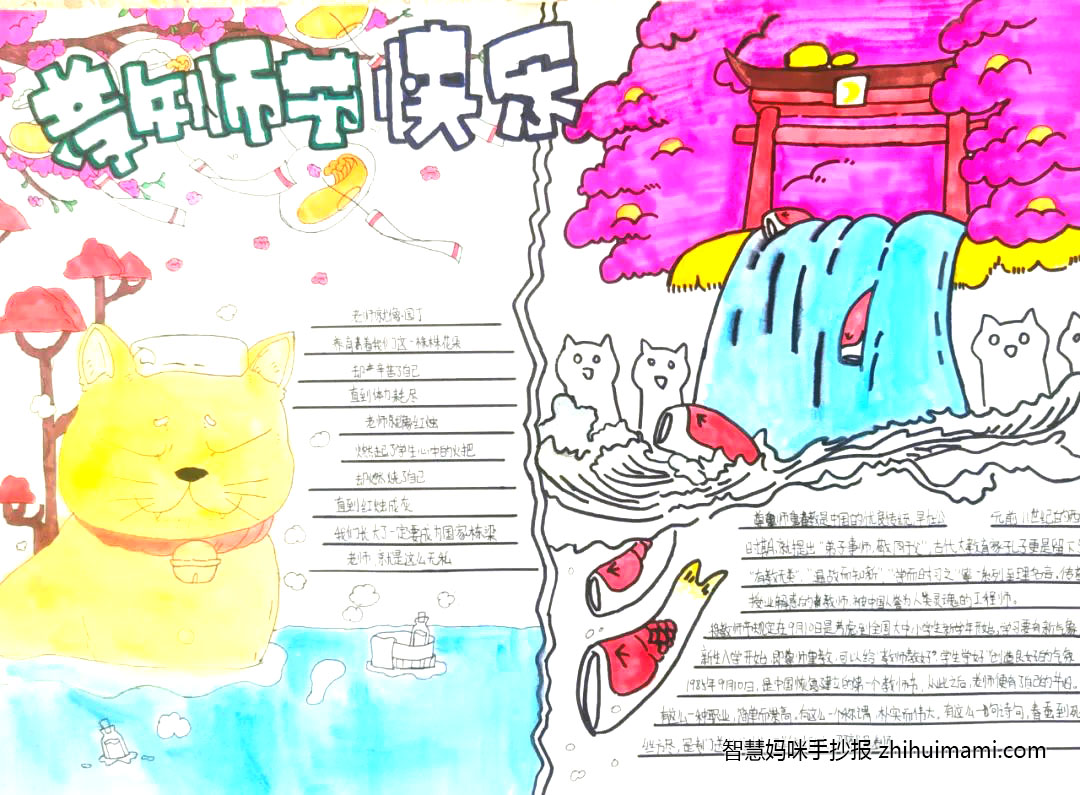 教师节快乐
老师就像园丁
养育着我们这一株株花朵
却辛苦了自己
直到体力耗尽
老师就像红烛
燃起了学生心中的火把
却燃烧了自己
直到红烛成灰
我们长大了一定要成为国家栋梁
老师,就是这么无私
尊师重教是中国的优良传统,早在公 元前11世纪的西
时期,就提出"弟子事师,敬同于父",古代大教育家孔子更是留下
"有教无类","温故而知新""学而时习之"等一系列至理名言,传
授业解惑的教师,被中国人誉为人类灵魂的工程师。
将教师节规定在9月10日是考虑到全国大中小学生新学年开始,学习要有新气象
新生入学开始,即尊师重教,可以给"教师教好","学生学好"创造良好的气氛
1985年9月10日,是中国恢复建立的第一个教师节,从此之后,老师便有了自己的节日。
有这么一种职业,简单而崇高。有这么一个称谓,朴实而伟大。有这么一句诗句,春蚕到死
丝方尽,是我们
智慧妈咪手抄报-zhihuimami.com